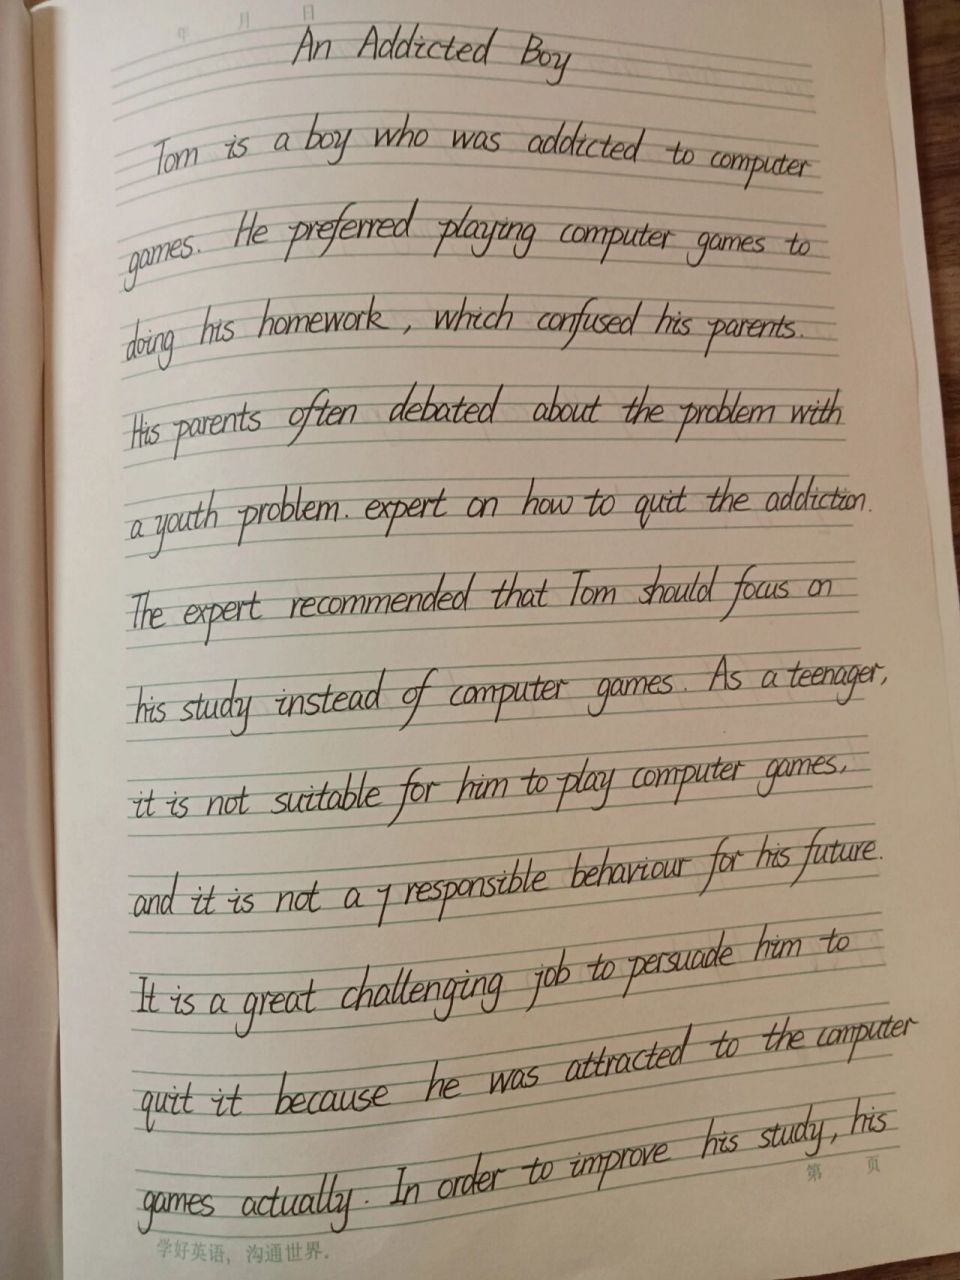 年 月 日
An Addicted Boy
Tom is a boy who was addicted to computer
games. He preferred playing computer games to
doing his homework, which confused his parents.
His parents often debated about the problem with
a youth problem. expert on how to quit the addiction.
The expert recommended that Tom should focus on
his study instead of computer games. As a teenager,
it is not suitable for him to play computer games,
and it is not a responsible behaviour for his future.
It is a great challenging job to persuade him to
quit it because he was attracted to the computer
games actually. In order to improve his study, his
第 页
学好英语，沟通世界.